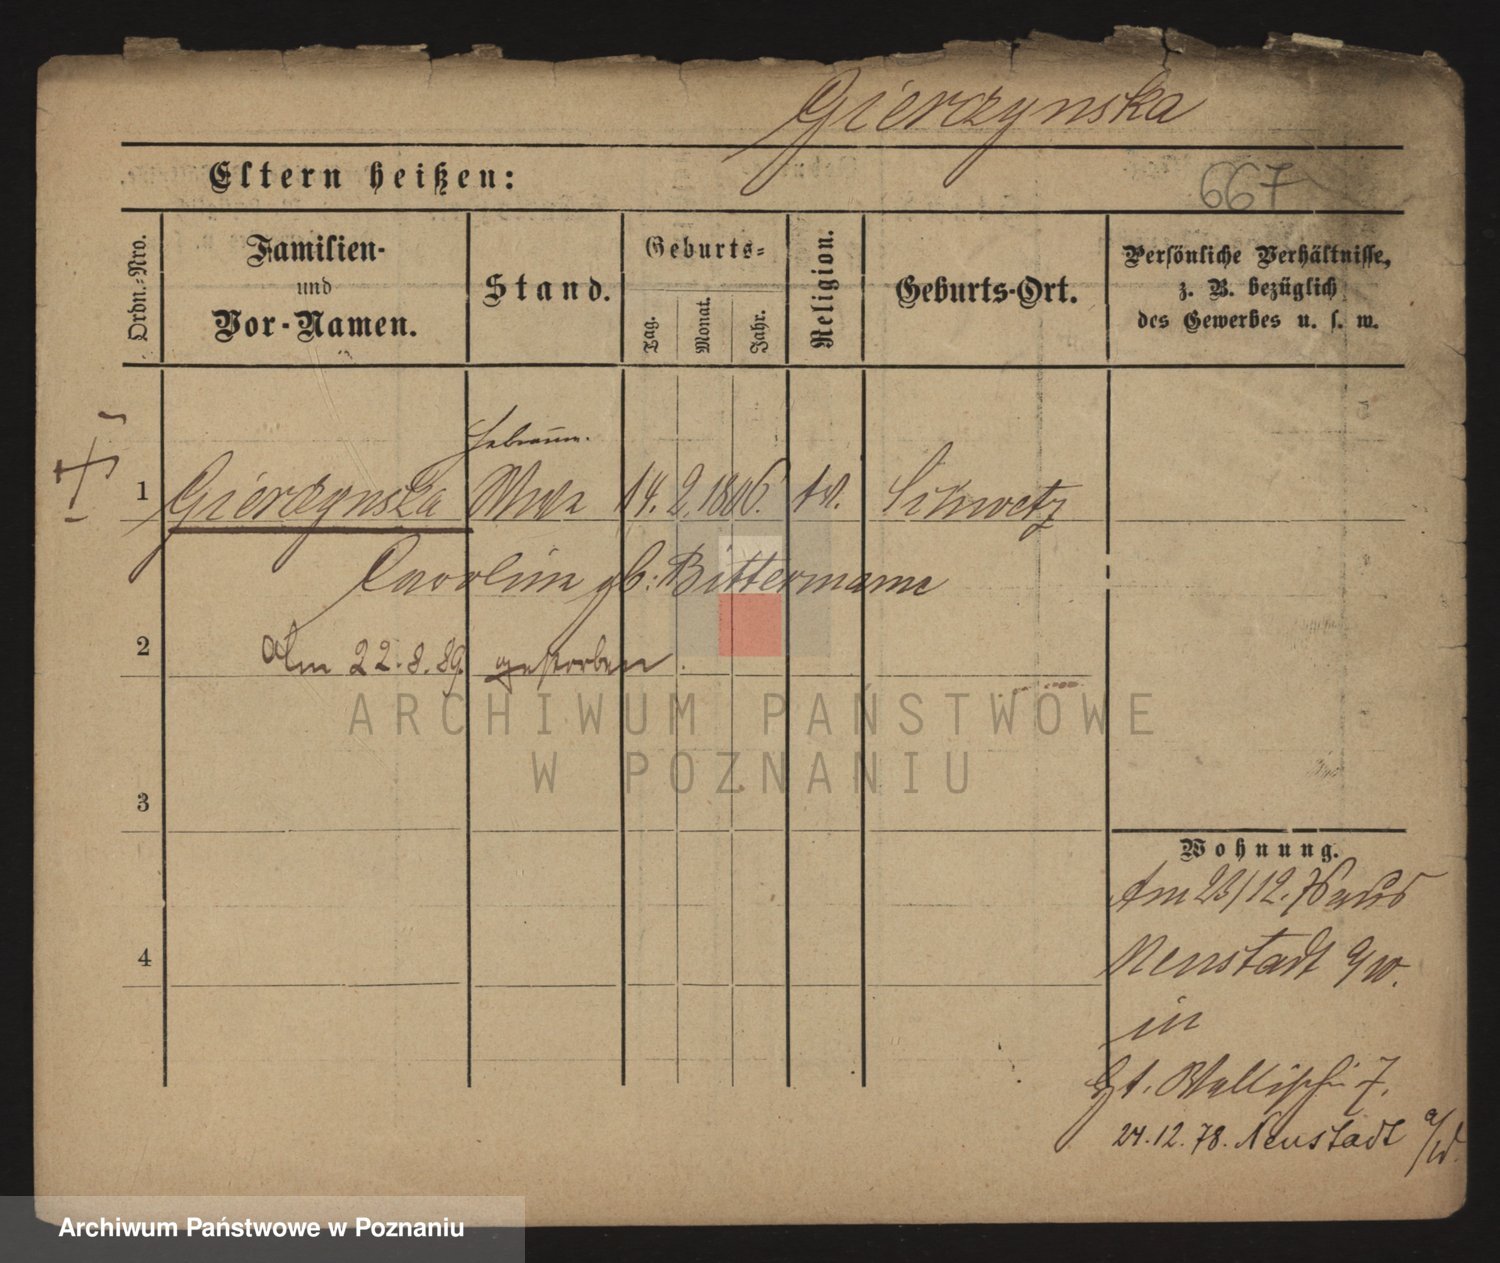 Gierczynska
Eltern heißen:
667
Ordn.-Nro.
Familien-
und
Vor-Namen.
Stand.
Geburts-
Tag.
Monat.
Jahr.
Religion.
Geburts-Ort.
Persönliche Verhältnisse,
z. B. bezüglich
des Gewerbes u. s. w.
Hebamme.
1 Gierczynska Wwe 14. 2. 1806. ev. Schwetz
Caroline gb: Bittermann
2 Am 22.8.89. gestorben.
ARCHIWUM PAŃSTWOWE
W POZNANIU
3
Wohnung.
Am 23/12.76 aus
4 Neustadt a/W.
in
Wallischei 7.
24.12.78. Neustadt a/W.
Archiwum Państwowe w Poznaniu